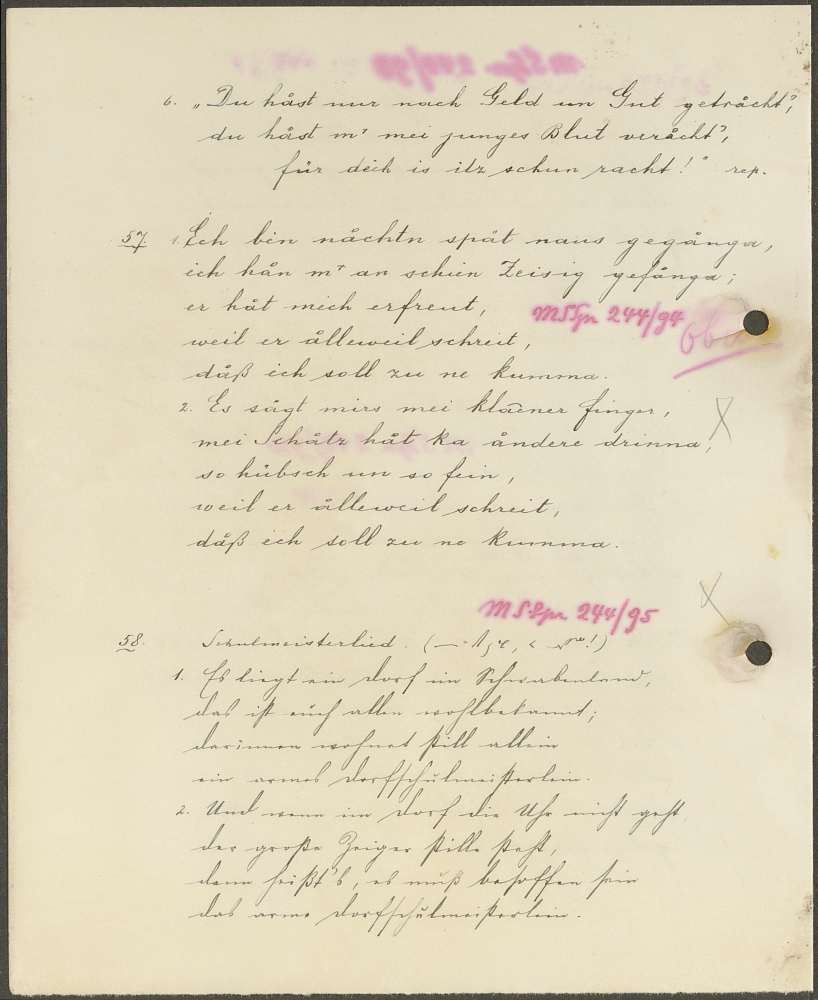 6. „Du håst nur nach Geld un Gut getråcht',
du håst m' mei junges Blut veråcht',
für dich is itz schun racht!" rep.
57. 1. Ich bin nåchtn spåt naus gegånga,
ich hån m' an schien Zeisig gefånga;
er håt mich erfreut,
MSSpr 244/94
weil er ålleweil schreit,
dåß ich soll zu ne kumma.
2. Es sågt mirs mei klaener finger,
mei Schåtz håt ka åndere drinna,
so hübsch un so fein,
weil er ålleweil schreit,
dåß ich soll zu ne kumma.
MSSpr 244/95
58. Schulmeisterlied.
1. Es liegt ein Dorf im Schwabenland,
das ist euch allen wohlbekannt;
darinnen wohnet still allein
ein armes Dorfschulmeisterlein.
2. Und wenn im Dorf die Uhr nicht geht
der große Zeiger stille steht,
dann heißt's, es muß besoffen sein
das arme Dorfschulmeisterlein.